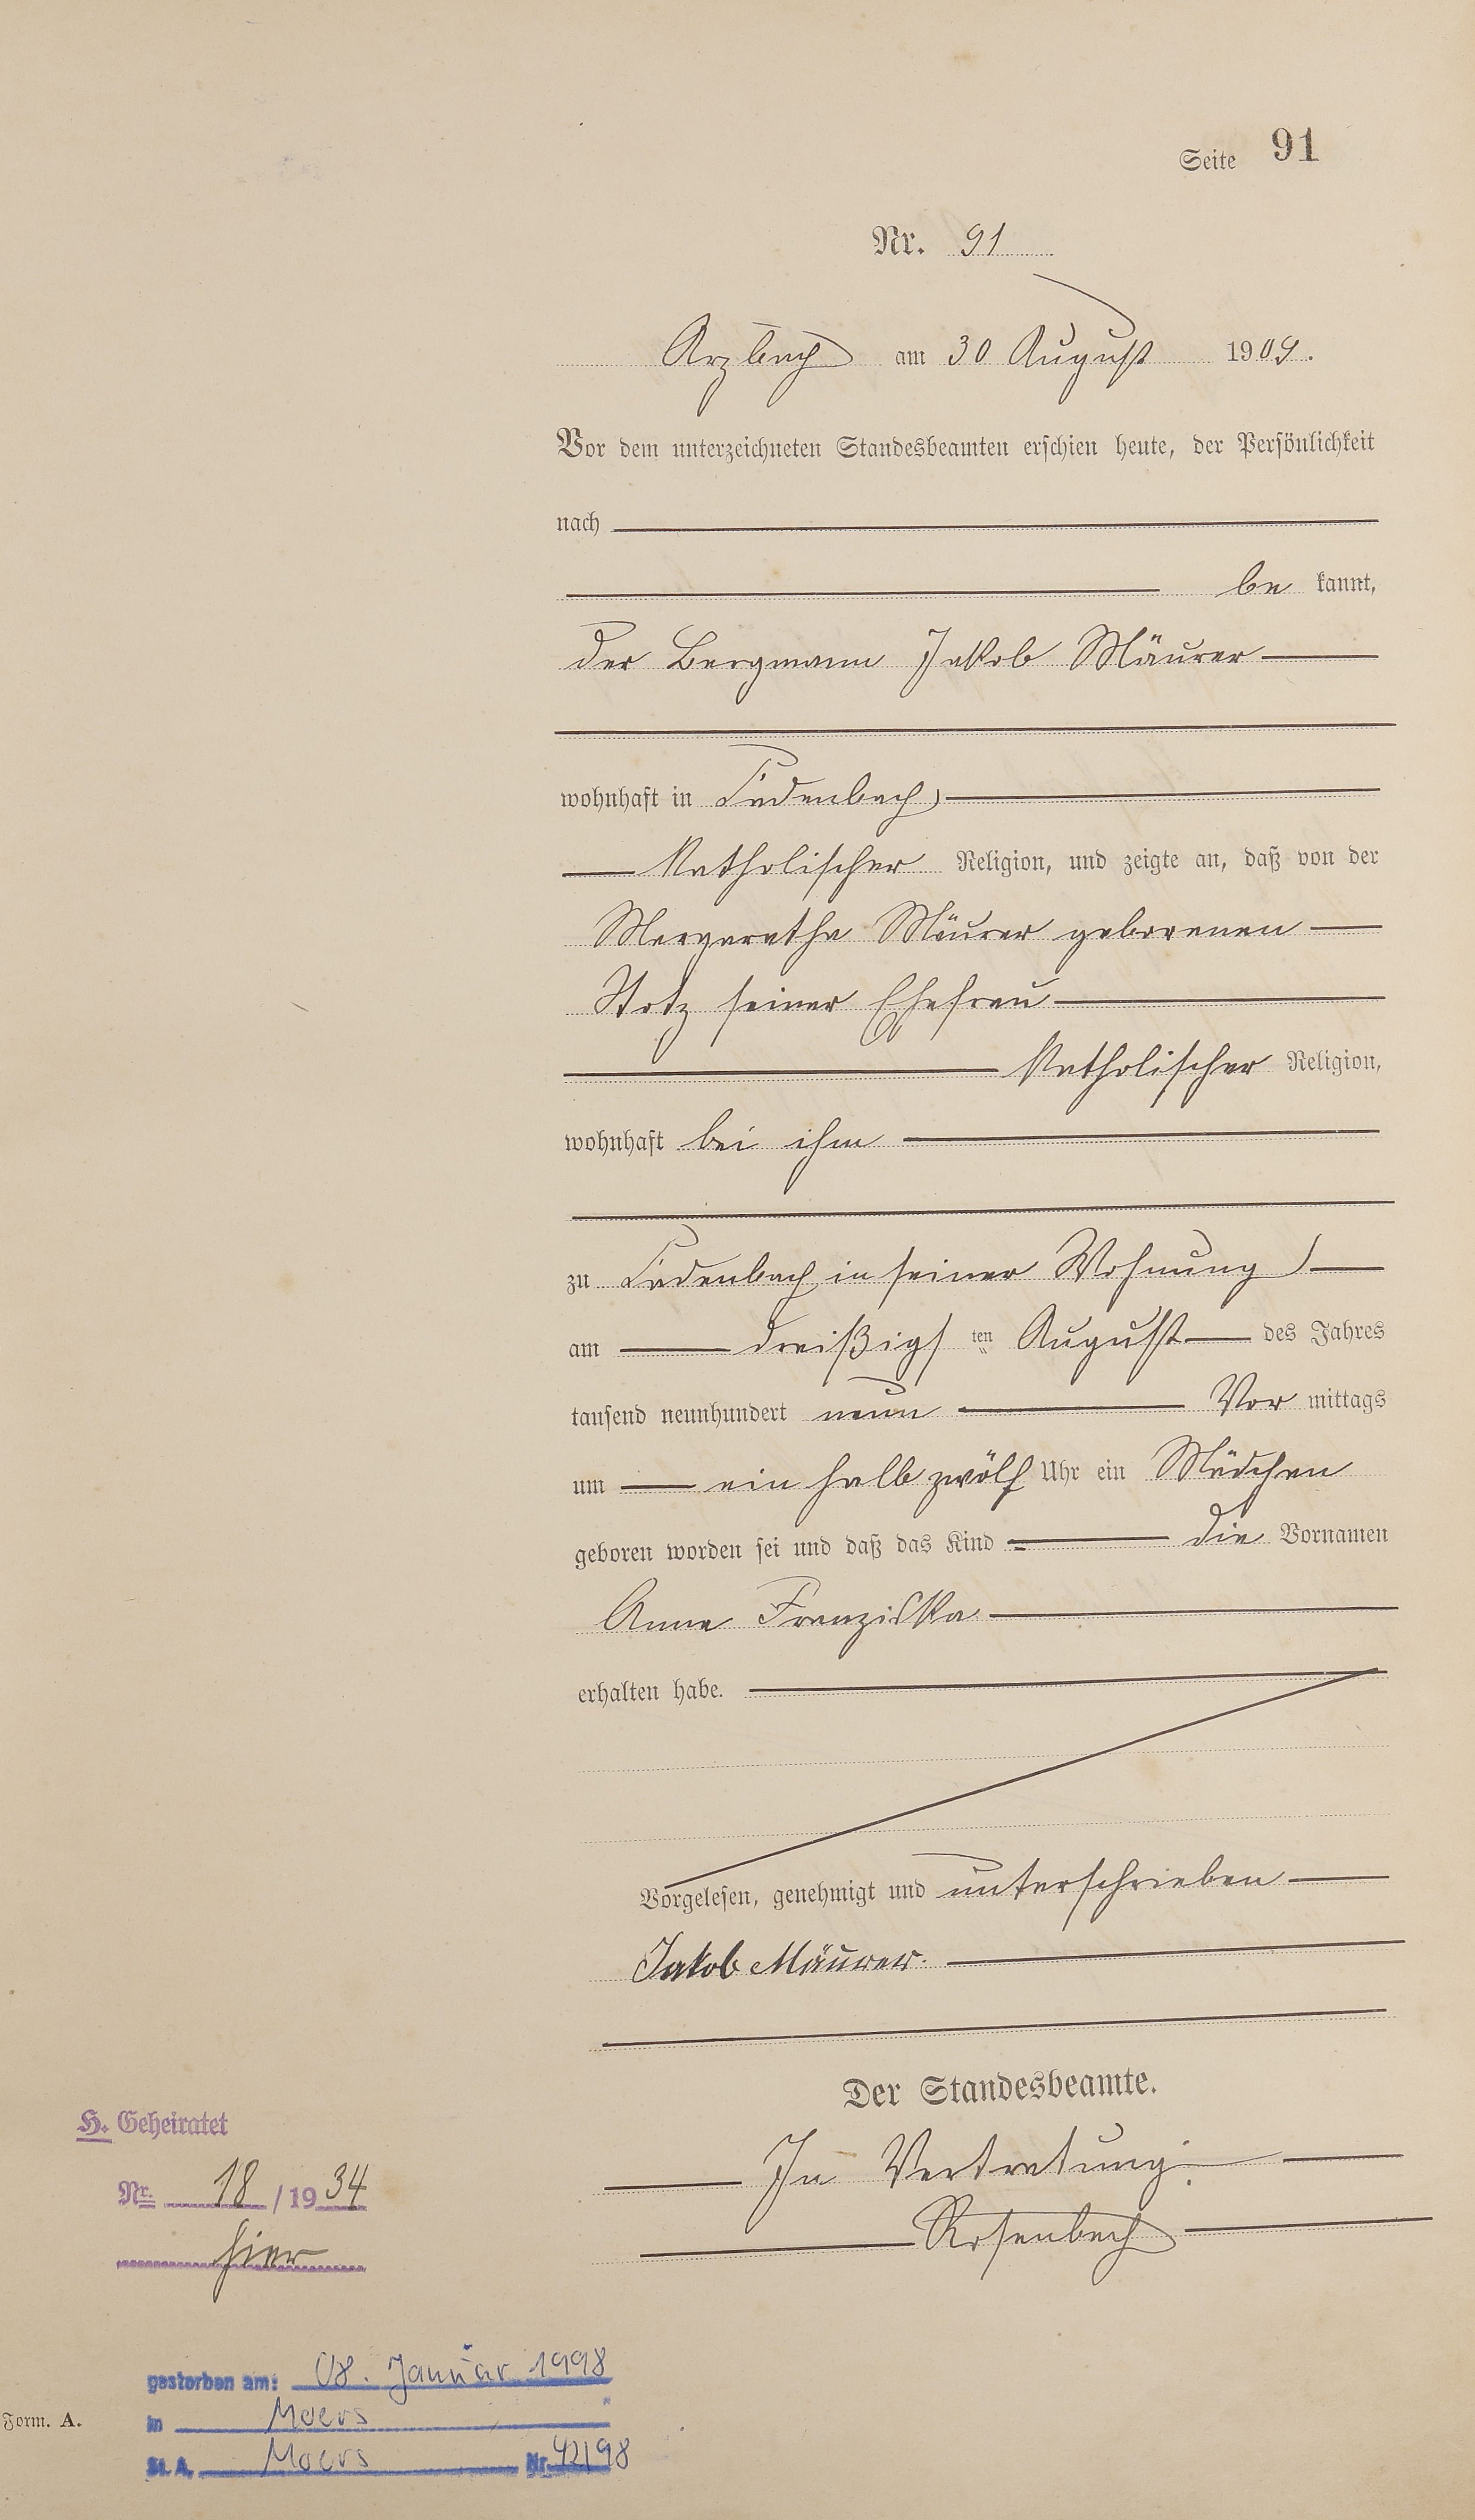 Seite 91
Nr. 91
Arzbach am 30 August 1909.
Vor dem unterzeichneten Standesbeamten erschien heute, der Persönlichkeit
nach
be kannt,
der Bergmann Jakob Mäurer
wohnhaft in Kadenbach,
katholischer Religion, und zeigte an, daß von der
Margaretha Mäurer geborenen
Stotz seiner Ehefrau
katholischer Religion,
wohnhaft bei ihm
zu Kadenbach in seiner Wohnung,
am dreißigsten August des Jahres
tausend neunhundert neun Vor mittags
um ein halb zwölf Uhr ein Mädchen
geboren worden sei und daß das Kind die Vornamen
Anna Franziska
erhalten habe.
Vorgelesen, genehmigt und unterschrieben
Jakob Mäurer.
Der Standesbeamte.
In Vertretung:
Rosenbach
H. Geheiratet
Nr. 18 / 1934
hier
gestorben am: 08. Januar 1998
in Moers
St. A. Moers Nr. 42/98
Form. A.